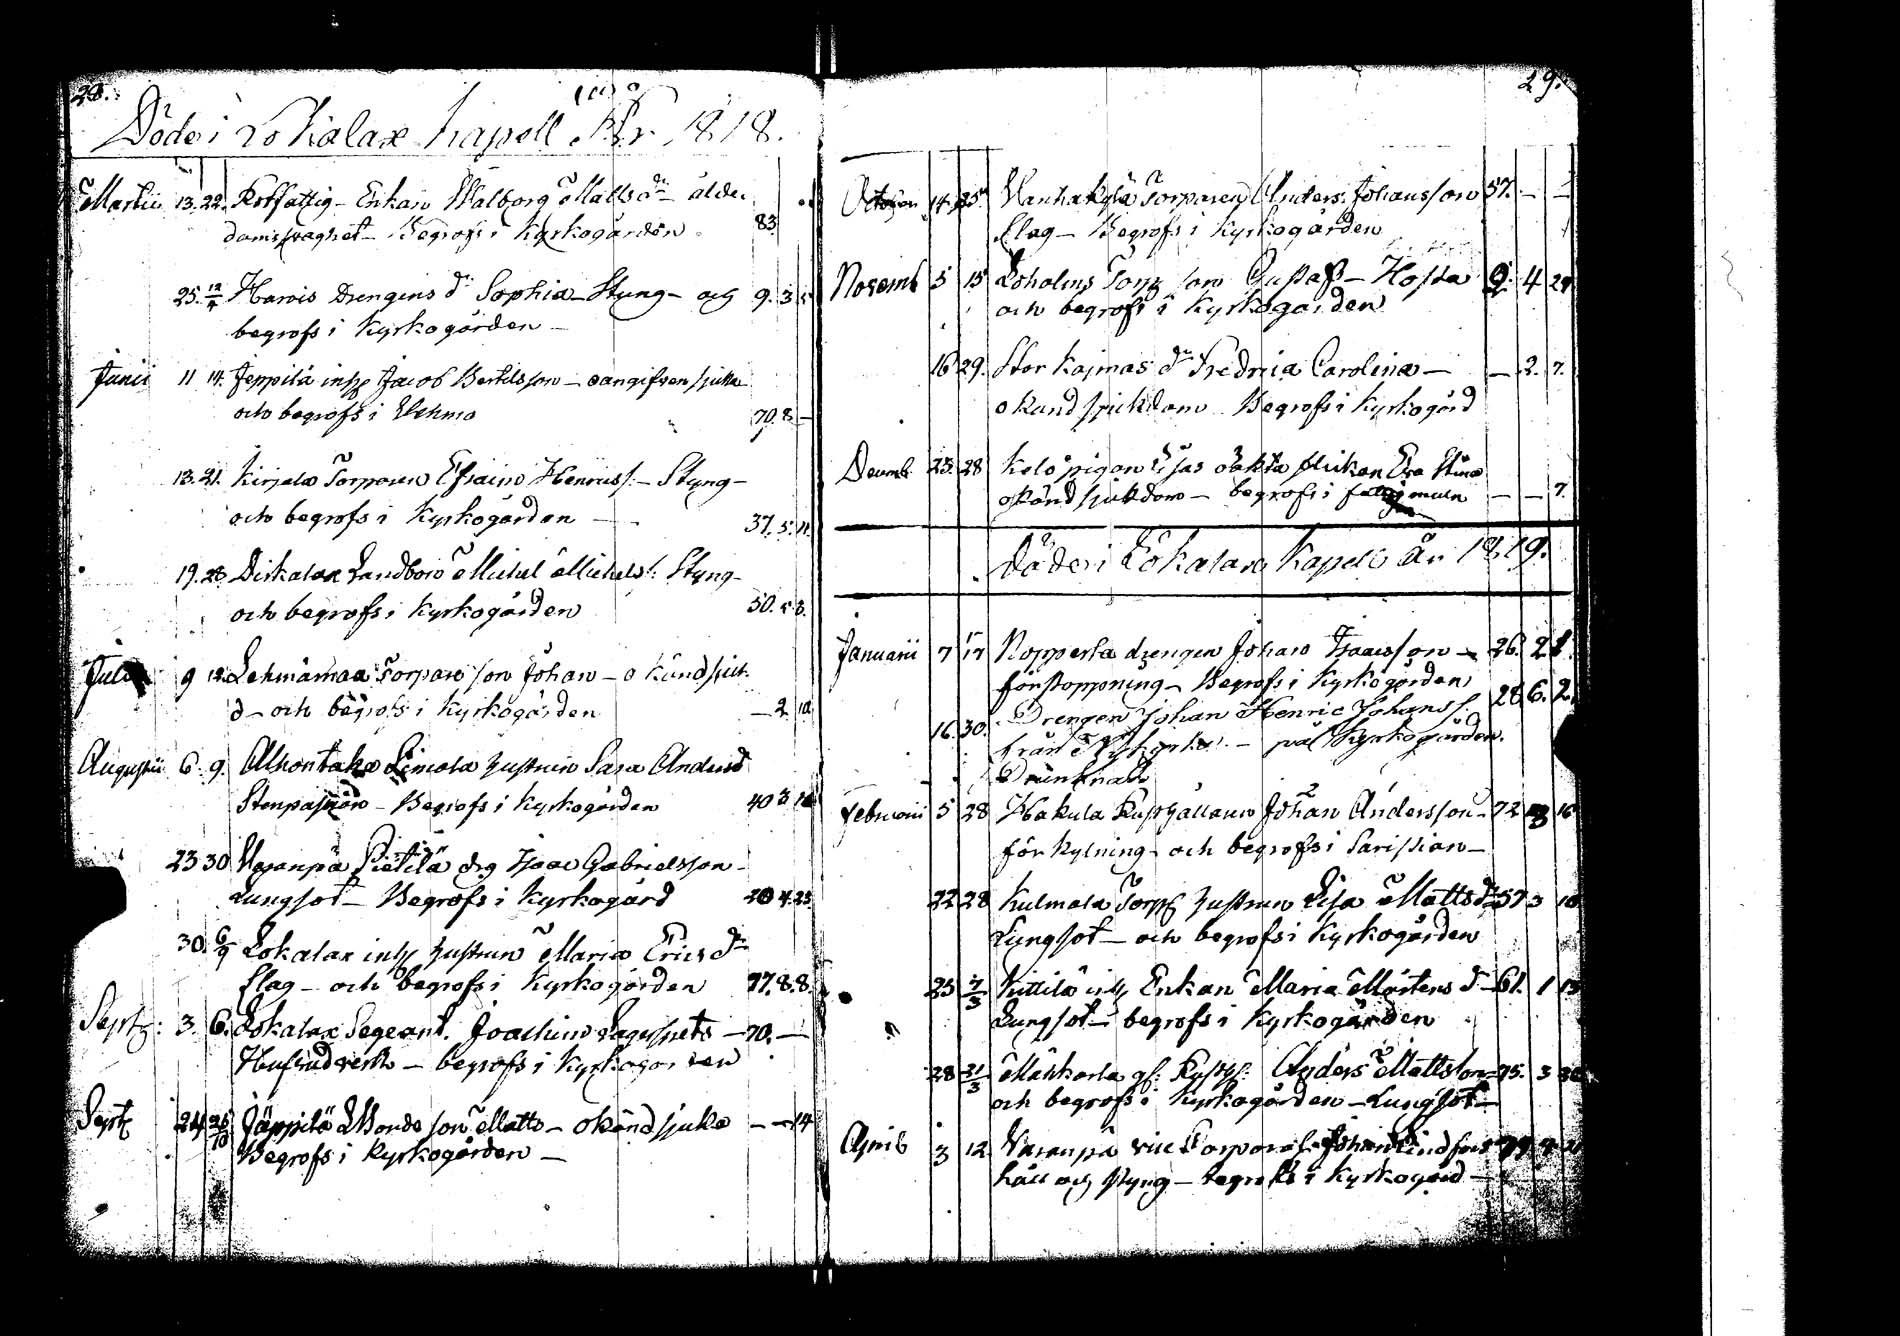 28.
Döde i Lokalax Kapell År 1818.
Martii 13. 22. Rotfattig Enkan Walborg Matts dr ålder
domssvaghet - Begrofs i Kyrkogården 83.
25. 12/4 Harvis Drengens dr Sophia - Styng - och 9. 3
begrofs i Kyrkogården -
Junii 11 14. Jeppilä inh Jacob Bertilsson - oangifven sjuka
och begrofs i Wehmo 70. 8 -
13. 21. Kirjala Torparen Efraim Henrics. - Styng -
och begrofs i Kyrkogården - 37. 5. 11.
19. 28. Landbon Michel Michels. Styng -
och begrofs i Kyrkogården 50. 5 8.
9 12. Lehmämaa Torpare son Johan - okänd sjuk
d - och begrofs i Kyrkogården - 2
Augustii 6. 9. hustrun Sara Anders d
- Begrofs i Kyrkogården 40 3
23 30 Waranpä Pietilä drg Isaac Gabrielsson -
Lungsot - Begrofs i Kyrkogård 4. 23
30. 6/9 Lokalax inh hustrun Maria Erics dr
Slag - och begrofs i Kyrkogården 77. 8. 8.
Sept: 3. 6. Lokalax Segeant. Joachim Lagerspets - 70. -
Hufvudverk - begrofs i Kyrkogården
Sept 24 Jäppilä Bonde son Matts - okänd sjuka - - 14
Begrofs i Kyrkogården -
29.
14. 25. Wanhakylä Torparen Anders Johansson 57. - -
Slag - Begrofs i Kyrkogården
Novemb 5 15 Loholms Torp son Gustaf - Hosta 9. 4
och begrofs i Kyrkogården
16 29. Stor Kajmas dr Fredrica Carolina - - 2. 7.
okänd sjukdom Begrofs i Kyrkogård
Decemb. 23. 28 pigan oäkta flickan Eva Stina
okänd sjukdom - begrofs i - - 7.
Döde i Lokalax Kapell År 1819.
Januarii 7 17/17 Nopperla drengen Johan Isaacsson - 26. 2
förstoppning - Begrofs i Kyrkogården
16. 30. Drengen Johan Henric Johanss. 28 6. 2.
från Nykyrka - på Kyrkogården.
Drunknad
Februarii 5 28 Hakula Johan Andersson - 72 16
förkylning - och begrofs i
22 28 Kulmala Torp hustrun Lisa Matts dr 57 3
Lungsot - och begrofs i Kyrkogården
25 7/3 Kittilä inh Enkan Maria Mårtens d - 61. 1 13
Lungsot - begrofs i Kyrkogården
28 21/3 Anders Mattsson - 75. 3
och begrofs i Kyrkogården - Lungsot -
April 3 12 Waranpä vice Corporal Johan Lindfors
håll och styng - begrofs i Kyrkogård -